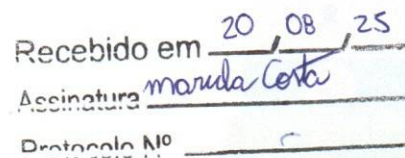 Recebido em 20 / 08 / 25
Assinatura Costa
Protocolo Nº